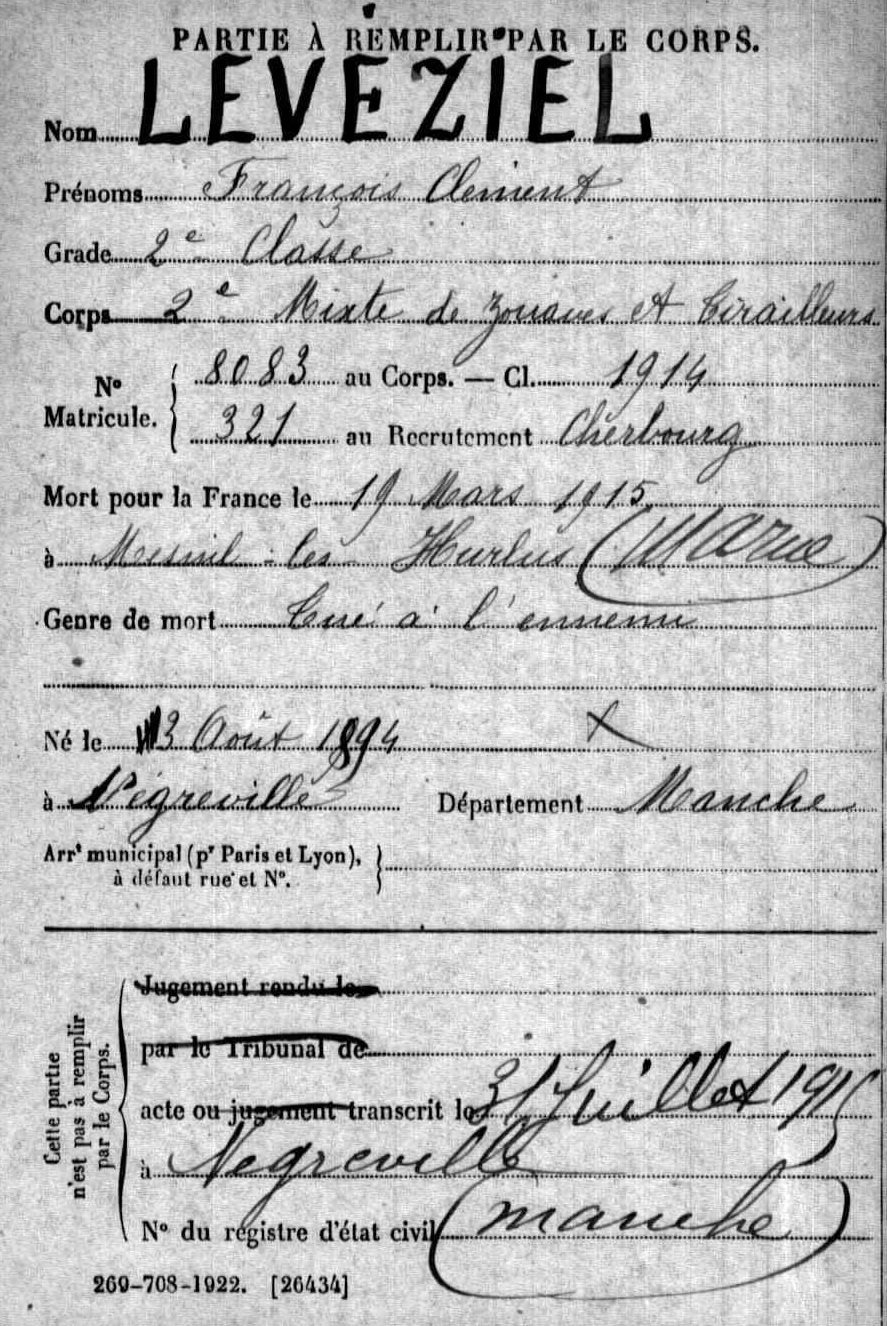 PARTIE À REMPLIR PAR LE CORPS.
Nom LEVÉZIEL
Prénoms François Clément
Grade 2e Classe
Corps 2e Mixte de Zouaves et Tirailleurs
No Matricule. { 8083 au Corps. — Cl. 1914
321 au Recrutement Cherbourg
Mort pour la France le 19 Mars 1915
à Mesnil-les Hurlus (Marne)
Genre de mort Tué à l'ennemi
Né le 3 Août 1894
à Négreville Département Manche
Arrt municipal (pr Paris et Lyon),
à défaut rue et No.
Cette partie
n'est pas à remplir
par le Corps.
Jugement rendu le
par le Tribunal de
acte ou jugement transcrit le 31 Juillet 1915
à Negreville
No du registre d'état civil (manche)
269-708-1922. [26434]